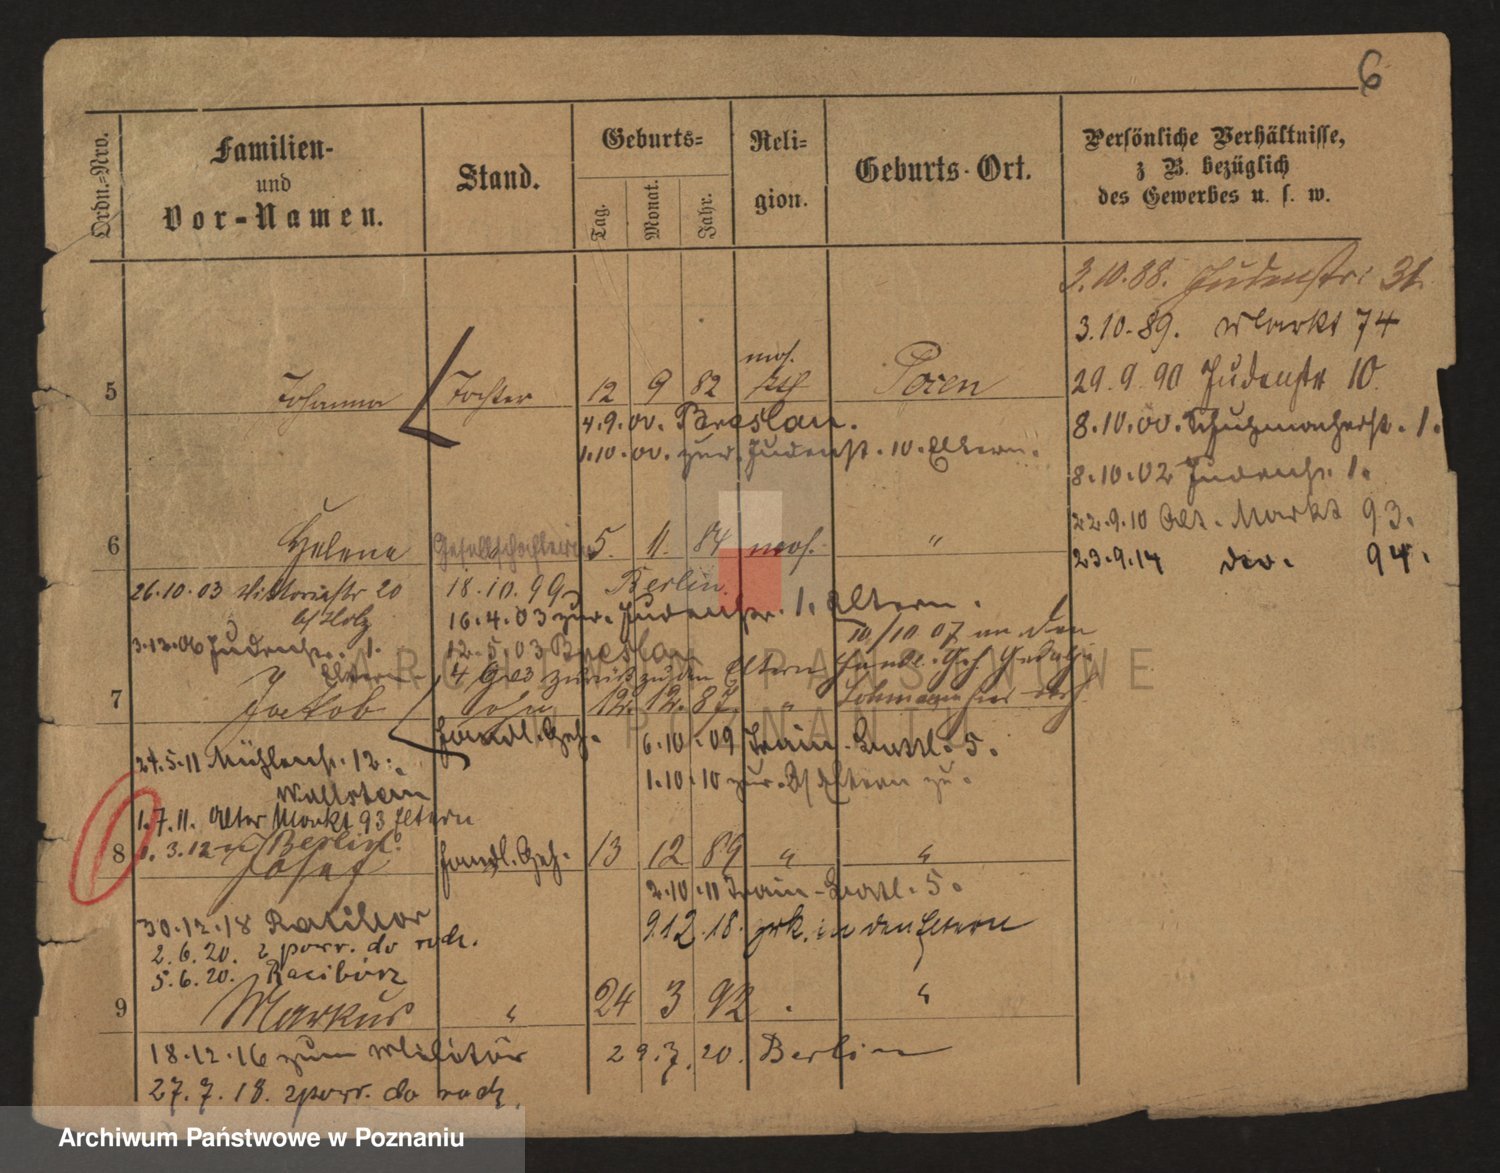 6
Ordn.-Nro.
Familien-
und
Vor-Namen.
Stand.
Geburts-
Tag.
Monat.
Jahr.
Reli-
gion.
Geburts-Ort.
Persönliche Verhältnisse,
z B. bezüglich
des Gewerbes u. s. w.
3.10.88. Judenstr: 31.
3.10.89. Markt 74
29.9.90 Judenstr 10.
8.10.00. Schuhmacherstr. 1.
8.10.02 Judenstr. 1.
22.9.10 Alt. Markt 93.
23.9.14 do. 94.
mos.
5 Johanna Tochter 12 9 82 Posen
4.9.00. Breslau.
1.10.00. zur. Judenstr. 10. Eltern.
6 Helene Gesellschafterin 5. 11. 84 mos. "
26.10.03 Viktoriastr 20
b/ Holz
18.10.99 Berlin.
16.4.03 zur. Judenstr. 1. Eltern.
3.12.06 Judenstr. 1.
Eltern
12.5.03 Breslau
zurück zu den Eltern
10/10 07 an den
Handl. Geh
7 Jakob Sohn 12. 12. 87. "
Handl. Geh.
6.10.09 Train-Batl. 5.
1.10.10 zur. Eltern zu.
24.5.11 Mühlenstr. 12.
Wallstein
1.7.11. Alter Markt 93 Eltern
1.3.12 n/ Berlin
8 Josef Handl. Geh. 13 12 89 " "
2.10.11 Train-Batl. 5.
30.12.18 Ratibor
9.12.18. zrk. zu den Eltern
2.6.20. z powr. do rodz.
5.6.20. Racibórz
9 Markus " 24 3 92 . "
18.12.16 zum Militär
29.7.20. Berlin
27.7.18. zpowr. do rodz.
ARCHIWUM PAŃSTWOWE
W POZNANIU
Archiwum Państwowe w Poznaniu